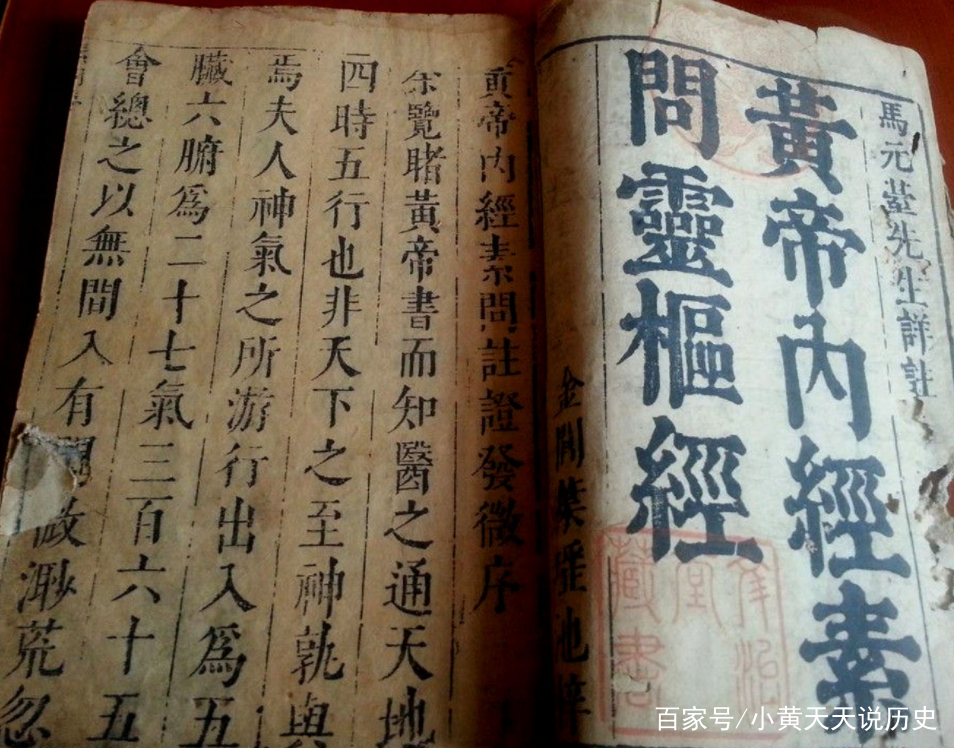 馬元臺先生詳註
黃帝內經素
問靈樞經
金閶葉瑤池梓
黃帝內經素問註證發微序
余覽睹黃帝書而知醫之通天地
四時五行也非天下之至神孰與
焉夫人神氣之所游行出入為五
臟六腑爲二十七氣三百六十五
會總之以無間入有間故渺荒忽
藏書
百家号/小黄天天说历史